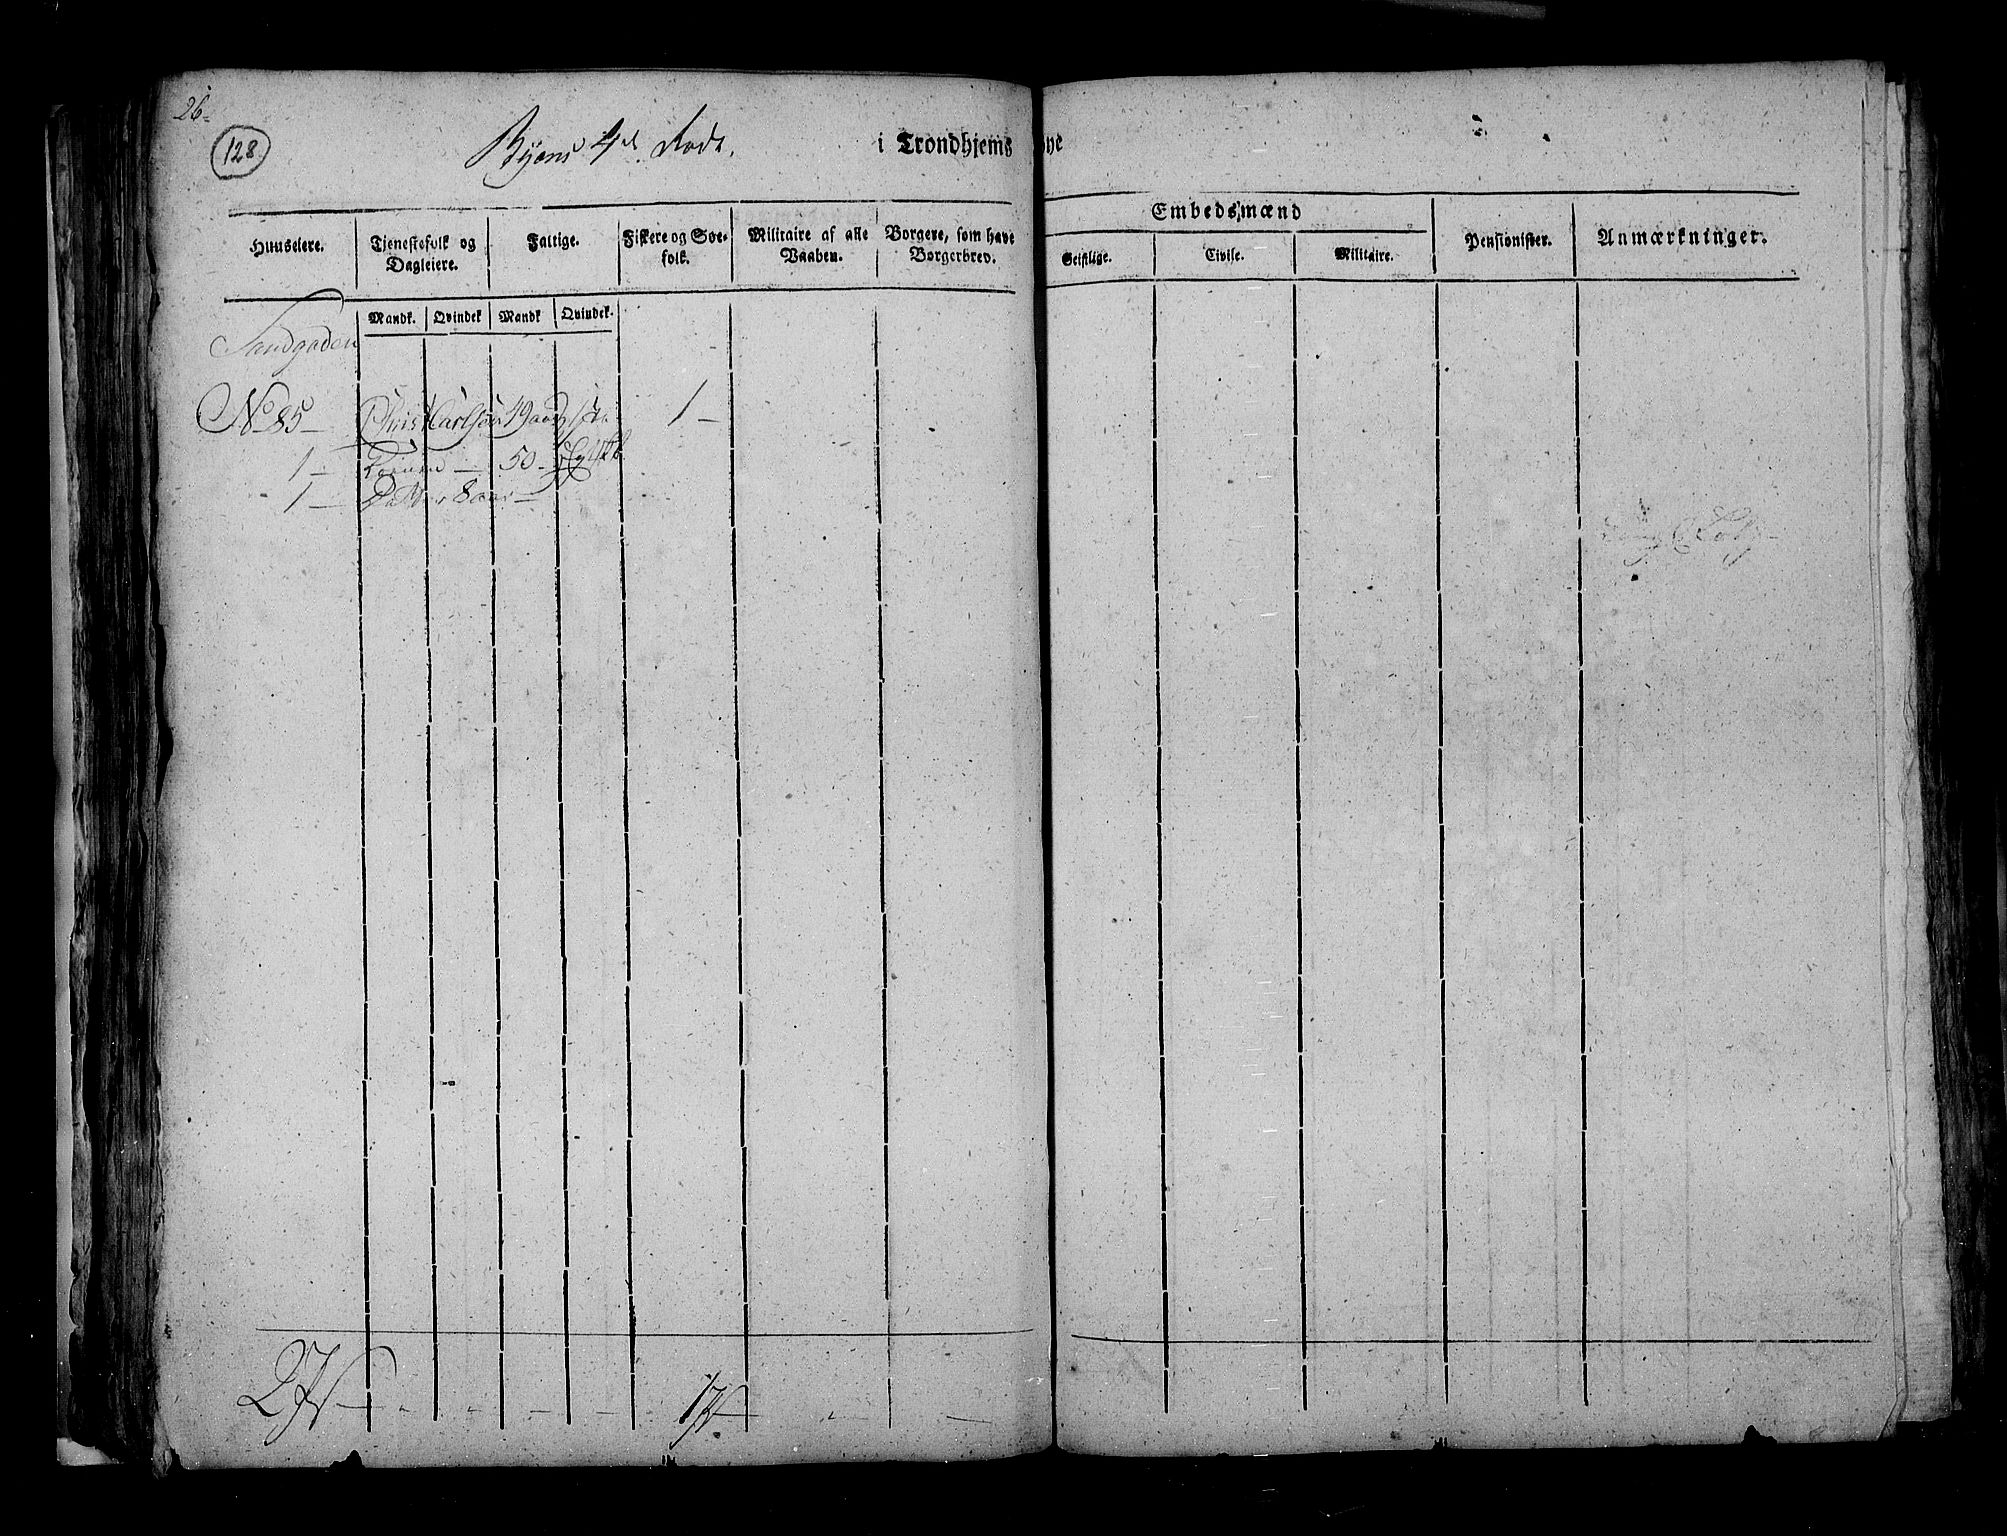 26
128
Byens 4de Rode. i Trondhjems Bye
Huuseiere. Tjenestefolk og Dagleiere. Fattige. Fiskere og Søefolk. Militaire af alle Vaaben. Borgere, som have Borgerbrev. Embedsmænd Pensionister. Anmærkninger.
Geistlige. Civile. Militaire.
Mandk. Qvindek Mandk Qvindek.
Sandgaden
No 85 — Chris Carlsøn 49 aar 1 —
1 — Konen — 50 —
1 — Datter 8 aar —
2 — — — — — 1 — — —